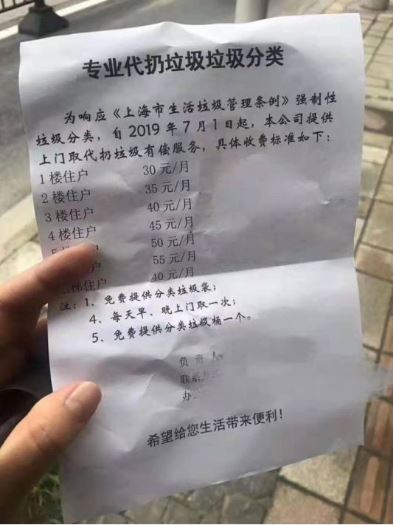 专业代扔垃圾垃圾分类
为响应《上海市生活垃圾管理条例》强制性
垃圾分类，自2019年7月1日起，本公司提供
上门取代扔垃圾有偿服务，具体收费标准如下：
1楼住户 30元/月
2楼住户 35元/月
3楼住户 40元/月
4楼住户 45元/月
50元/月
55元/月
梯住户 40元/月
注：1、免费提供分类垃圾袋；
4、每天早、晚上门取一次；
5、免费提供分类垃圾桶一个。
负责
联系
办
希望给您生活带来便利！